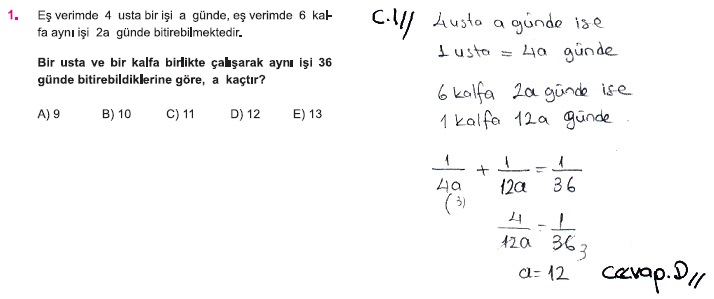 1. Eş verimde 4 usta bir işi a günde, eş verimde 6 kal-
fa aynı işi 2a günde bitirebilmektedir.
Bir usta ve bir kalfa birlikte çalışarak aynı işi 36
günde bitirebildiklerine göre, a kaçtır?
A) 9 B) 10 C) 11 D) 12 E) 13
C.1// 4 usta a günde ise
1 usta = 4a günde
6 kalfa 2a günde ise
1 kalfa 12a günde
1/4a + 1/12a = 1/36
(3)
4/12a = 1/36 3
a = 12 cevap. D//